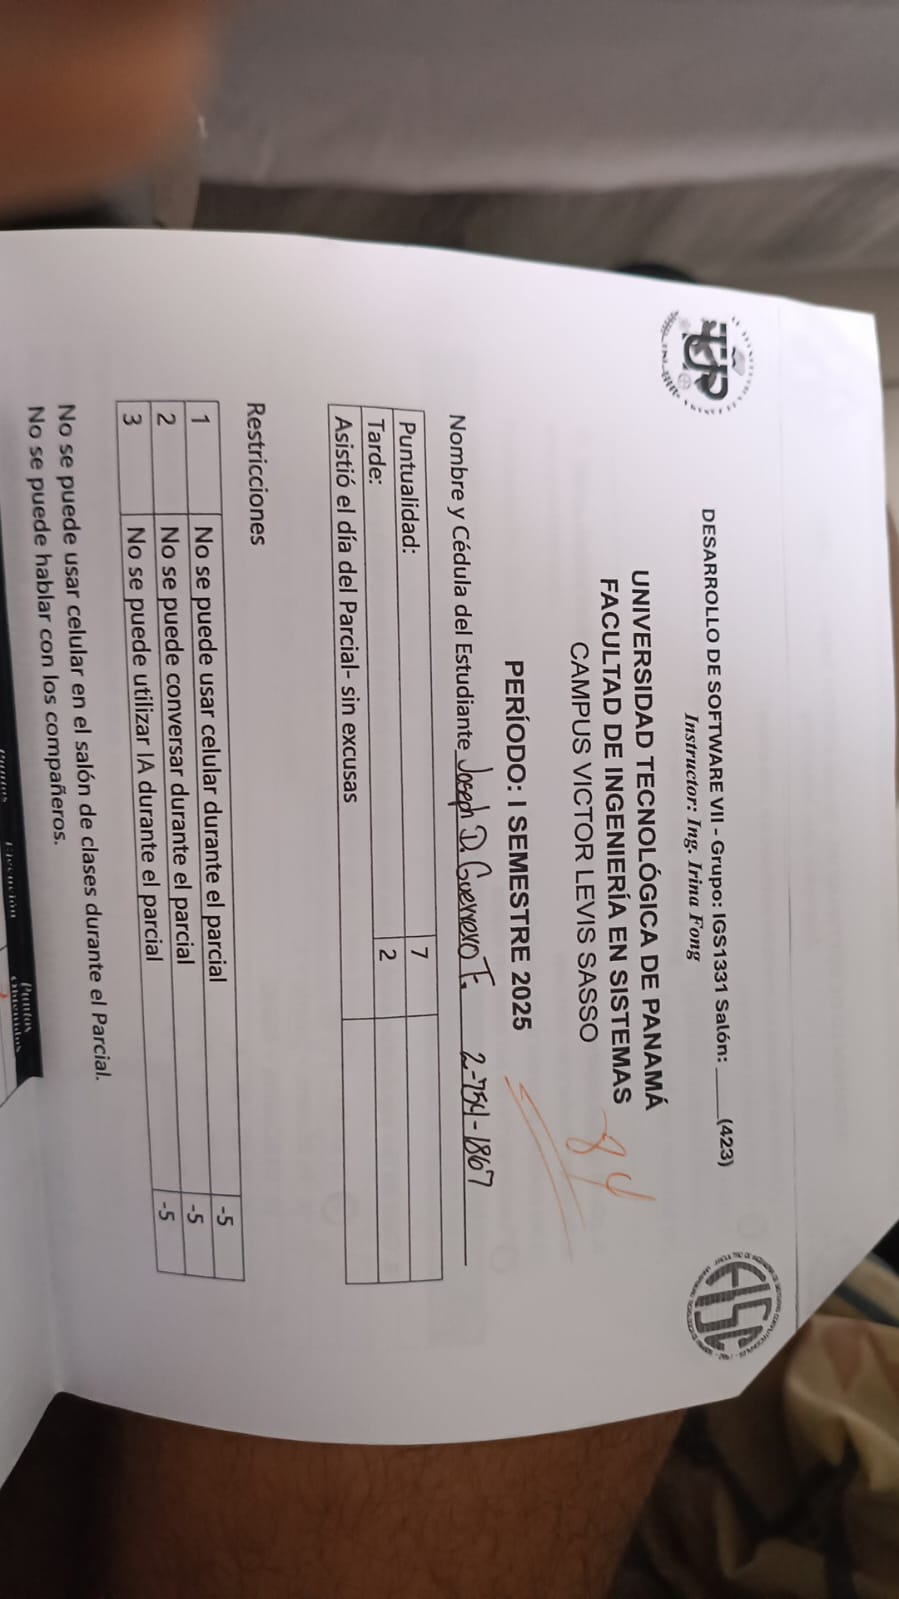 DESARROLLO DE SOFTWARE VII - Grupo: IGS1331 Salón: ____(423)
Instructor: Ing. Irina Fong
UTP
EISC
UNIVERSIDAD TECNOLÓGICA DE PANAMÁ
FACULTAD DE INGENIERÍA EN SISTEMAS
CAMPUS VICTOR LEVIS SASSO
PERÍODO: I SEMESTRE 2025
Nombre y Cédula del Estudiante Joseph D. Guerrero T. 2-754-1867
Puntualidad: 7
Tarde: 2
Asistió el día del Parcial- sin excusas
Restricciones
1 No se puede usar celular durante el parcial -5
2 No se puede conversar durante el parcial -5
3 No se puede utilizar IA durante el parcial -5
No se puede usar celular en el salón de clases durante el Parcial.
No se puede hablar con los compañeros.
Puntos